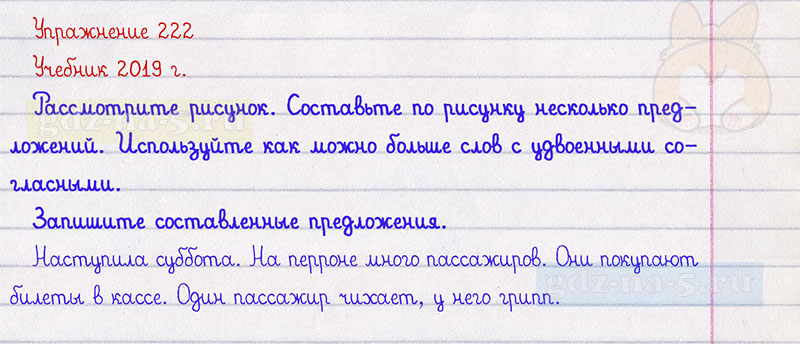 Упражнение 222
Учебник 2019 г.
Рассмотрите рисунок. Составьте по рисунку несколько пред-
ложений. Используйте как можно больше слов с удвоенными со-
гласными.
Запишите составленные предложения.
Наступила суббота. На перроне много пассажиров. Они покупают
билеты в кассе. Один пассажир чихает, у него грипп.
gdz-na-5.ru
gdz-na-5.ru